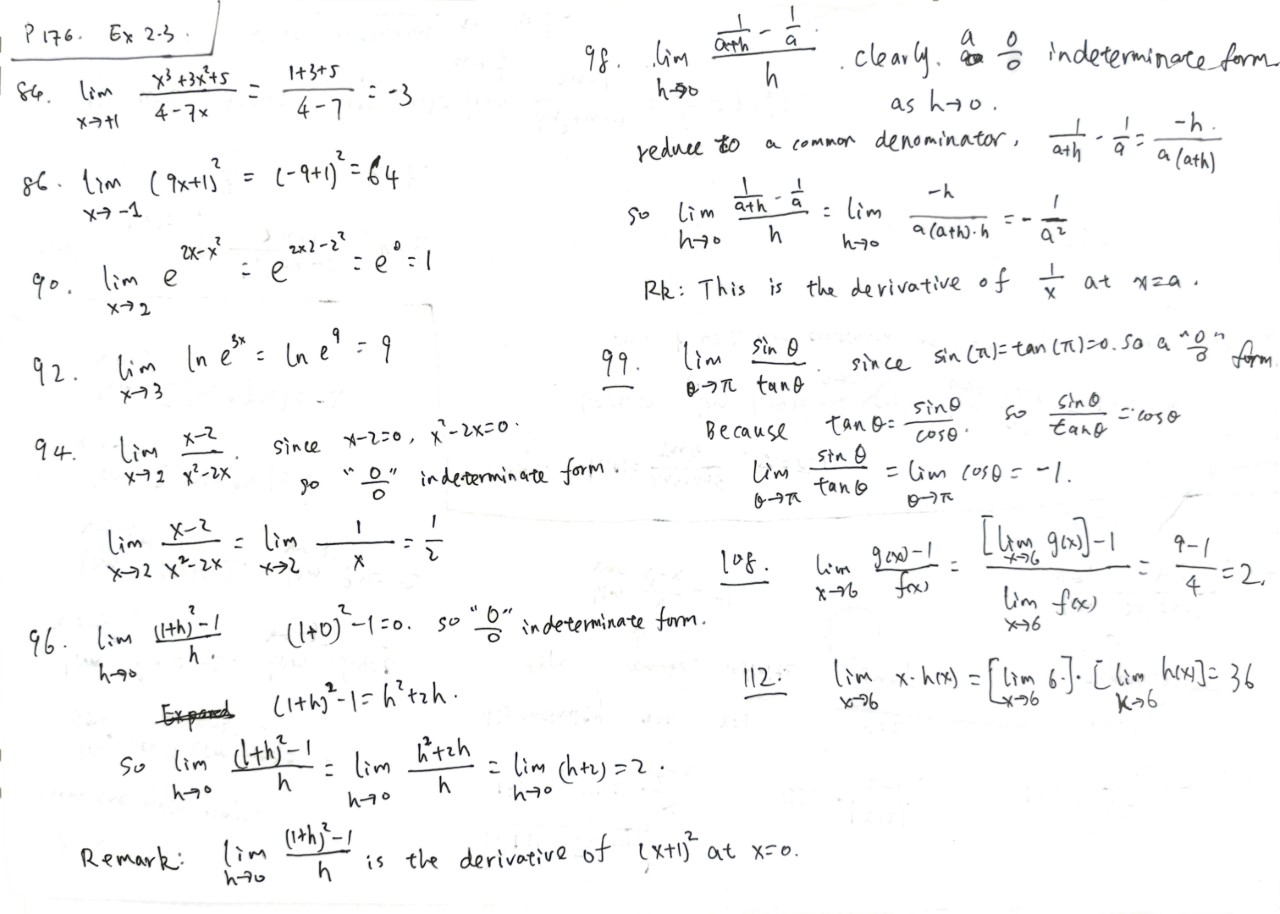 P 176. Ex 2.3.
84. lim x→+1 (x³+3x²+5)/(4-7x) = (1+3+5)/(4-7) = -3
86. lim x→-1 (9x+1)² = (-9+1)² = 64
90. lim x→2 e^(2x-x²) = e^(2×2-2²) = e⁰ = 1
92. lim x→3 ln e^(3x) = ln e⁹ = 9
94. lim x→2 (x-2)/(x²-2x). since x-2=0, x²-2x=0.
so "0/0" indeterminate form.
lim x→2 (x-2)/(x²-2x) = lim x→2 1/x = 1/2
96. lim h→0 ((1+h)²-1)/h. (1+0)²-1=0. so "0/0" indeterminate form.
Expand (1+h)²-1 = h²+2h.
So lim h→0 ((1+h)²-1)/h = lim h→0 (h²+2h)/h = lim h→0 (h+2) = 2.
Remark: lim h→0 ((1+h)²-1)/h is the derivative of (x+1)² at x=0.
98. lim h→0 (1/(a+h) - 1/a)/h. clearly. a 0/0 indeterminate form
as h→0.
reduce to a common denominator, 1/(a+h) - 1/a = -h/(a(a+h)).
so lim h→0 (1/(a+h) - 1/a)/h = lim h→0 -h/(a(a+h)·h) = -1/a²
Rk: This is the derivative of 1/x at x=a.
99. lim θ→π sinθ/tanθ. since sin(π)=tan(π)=0. So a "0/0" form
Because tanθ = sinθ/cosθ. so sinθ/tanθ = cosθ
lim θ→π sinθ/tanθ = lim θ→π cosθ = -1.
108. lim x→6 (g(x)-1)/f(x) = ([lim x→6 g(x)]-1)/(lim x→6 f(x)) = (9-1)/4 = 2.
112. lim x→6 x·h(x) = [lim x→6 6.]·[lim x→6 h(x)] = 36